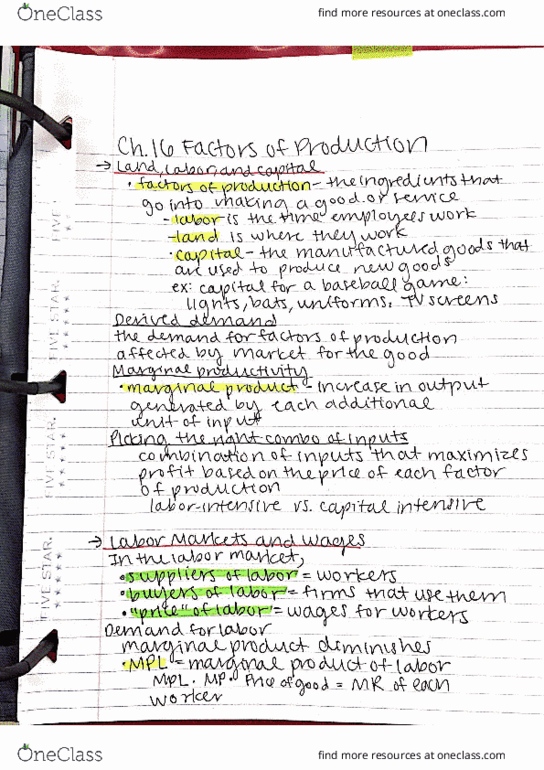 OneClass
find more resources at oneclass.com
Ch.16 Factors of Production
→ Land, labor, and capital
• factors of production - the ingredients that
go into making a good or service
- labor is the time employees work
- land is where they work
• capital - the manufactured goods that
are used to produce new goods
ex: capital for a baseball game:
lights, bats, uniforms, TV screens
Derived demand
the demand for factors of production
affected by market for the good
Marginal productivity
• marginal product - increase in output
generated by each additional
unit of input
Picking the right combo of inputs
combination of inputs that maximizes
profit based on the price of each factor
of production
labor-intensive vs. capital intensive
→ Labor Markets and wages
In the labor market,
• suppliers of labor = workers
• buyers of labor = firms that use them
• "price" of labor = wages for workers
Demand for labor
marginal product diminishes
• MPL = marginal product of labor
MPL. MP. Price of good = MR of each
worker
FIVE STAR.
FIVE STAR.
FIVE STAR.
OneClass
find more resources at oneclass.com